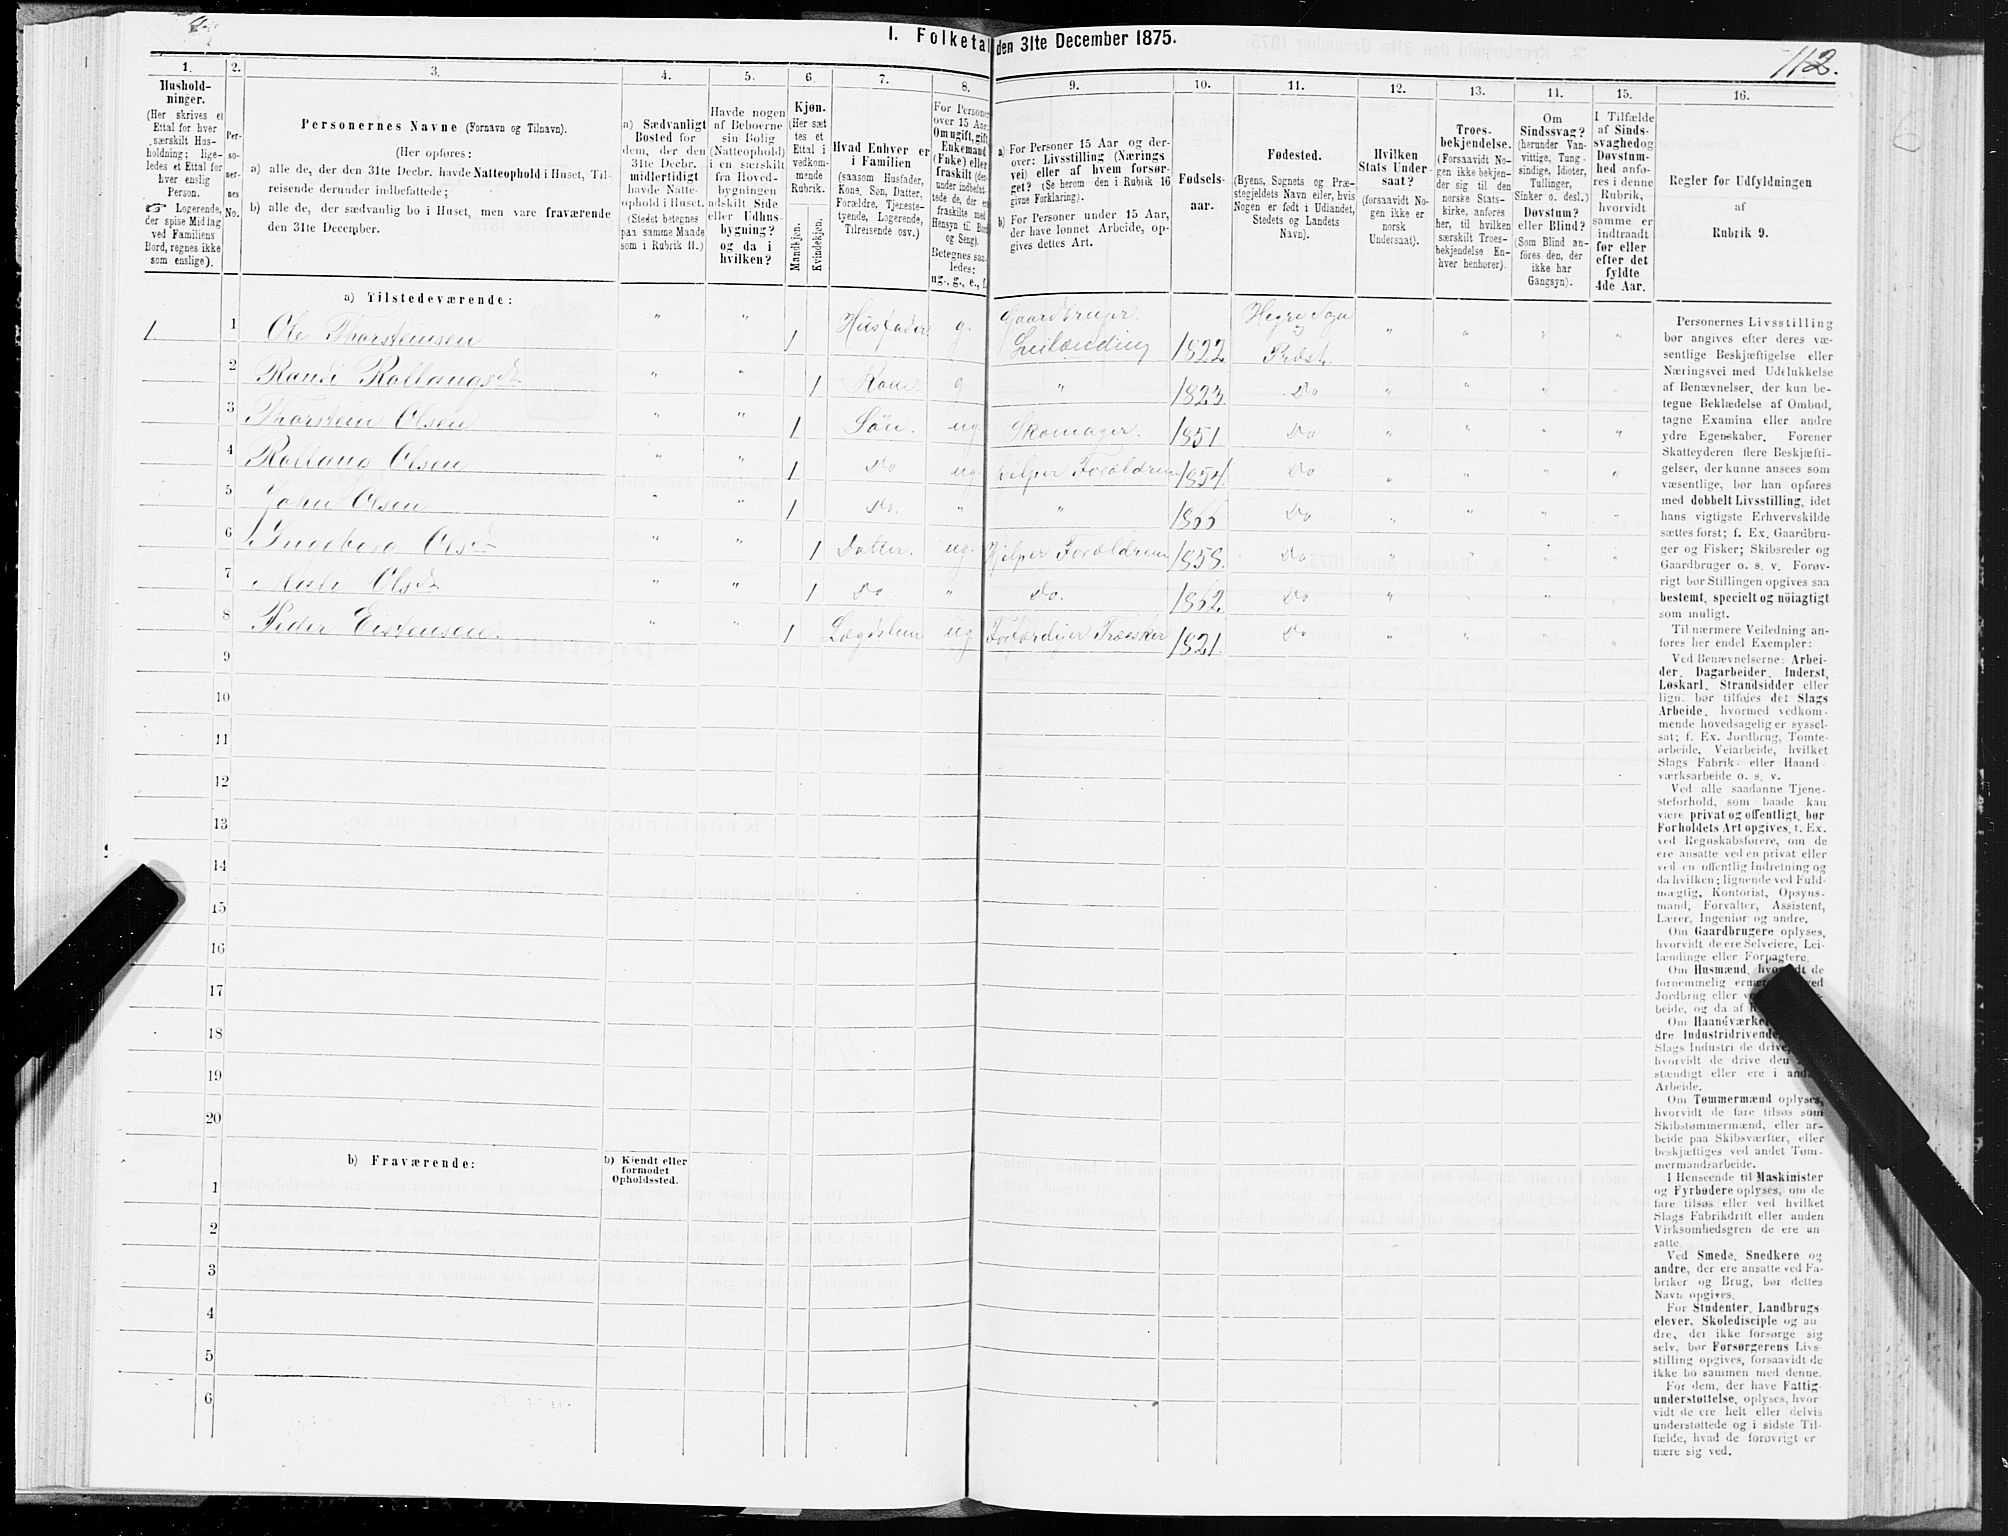 I. Folketal den 31te December 1875.
112.
1.
2.
3.
4.
5.
6.
7.
8.
9.
10.
11.
12.
13.
14.
15.
16.
Hushold-
ninger.
(Her skrives et
Ettal for hver
særskilt Hus-
holdning; lige-
ledes et Ettal for
hver enslig
Person.
☞ Logerende,
der spise Middag
ved Familiens
Bord, regnes ikke
som enslige).
Per-
so-
ner-
nes
No.
Personernes Navne (Fornavn og Tilnavn).
(Her opføres:
a) alle de, der den 31te Decbr. havde Natteophold i Huset, Til-
reisende derunder indbefattede;
b) alle de, der sædvanlig bo i Huset, men vare fraværende
den 31te December.
a) Sædvanligt
Bosted for
dem, der den
31te Decbr.
midlertidigt
havde Natte-
ophold i Huset.
(Stedet betegnes
paa samme Maade
som i Rubrik 11.)
Havde nogen
af Beboerne
sin Bolig
(Natteophold)
i en særskilt
fra Hoved-
bygningen
adskilt Side
eller Udhus-
bygning?
og da i
hvilken?
Kjøn.
(Her sæt
tes et
Ettal i
vedkom-
mende
Rubrik.
Mandkjøn.
Kvindekjøn.
Hvad Enhver er
i Familien
(saasom Husfader,
Kone, Søn, Datter,
Forældre, Tjeneste-
tyende, Logerende,
Tilreisende osv.)
For Personer
over 15 Aar:
Om ugift, gift,
Enkemand
(Enke) eller
fraskilt (der-
under indbefat-
tede de, der er
fraskilte med
Hensyn til Bord
og Seng).
Betegnes saa-
ledes:
ug., g., e., f.
a) For Personer 15 Aar og der-
over: Livsstilling (Nærings
vei) eller af hvem forsør-
get? (Se herom den i Rubrik 16
givne Forklaring).
b) For Personer under 15 Aar,
der have lønnet Arbeide, op-
gives dettes Art.
Fødsels-
aar.
Fødested.
(Byens, Sognets og Præ-
stegjeldets Navn eller, hvis
Nogen er født i Udlandet,
Stedets og Landets
Navn).
Hvilken
Stats Under-
saat?
(forsaavidt No-
gen ikke er
norsk
Undersaat).
Troes-
bekjendelse.
(Forsaavidt No-
gen ikke bekjen-
der sig til den
norske Stats-
kirke, anføres
her, til hvilken
særskilt Troes-
bekjendelse En-
hver henhører).
Om
Sindssvag?
(herunder Van-
vittige, Tung-
sindige, Idioter,
Tullinger,
Sinker o. desl.)
Døvstum?
eller Blind?
(Som Blind an-
føres den, der
ikke har
Gangsyn).
I Tilfælde
af Sinds-
svaghed og
Døvstum-
hed anfø-
res i denne
Rubrik,
hvorvidt
samme er
indtraadt
før eller
efter det
fyldte
4de Aar.
Regler for Udfyldningen
af
Rubrik 9.
a) Tilstedeværende:
1 1 Ole Thorsteinsen " " 1 Husfader g. Gaardbruger Leilænding 1822 Hegre Sogn Præst. " " " "
2 Randi Rollaugsdtr " " 1 Kone g " 1823 Do " " " "
3 Thorstein Olsen " " 1 Søn. ug Skomager. 1851. Do " " " "
4 Rollaug Olsen " " 1 Do ug hjelper Forældrene 1854. Do " " " "
5 John Olsen " " 1 Do. " " 1866 Do " " " "
6 Ingeborg Olsdtr " " 1 Datter. ug. Hjelper Forældrene 1858. Do " " " "
7 Mali Olsdtr " " 1 Do. " Do. 1862. Do " " " "
8 Peder Eistensen " " 1 Lægdslem ug. Forfærdiger Træsker 1821. Do " " " "
9
10
11
12
13
14
15
16
17
18
19
20
b) Fraværende:
b) Kjendt eller
formodet
Opholdssted.
1
2
3
4
5
6
Personernes Livsstilling
bør angives efter deres væ-
sentlige Beskjæftigelse eller
Næringsvei med Udelukkelse
af Benævnelser, der kun be-
tegne Beklædelse af Ombud,
tagne Examina eller andre
ydre Egenskaber. Forener
Skatteyderen flere Beskjæfti-
gelser, der kunne ansees som
væsentlige, bør han opføres
med dobbelt Livsstilling, idet
hans vigtigste Erhvervskilde
sættes først; f. Ex. Gaardbru-
ger og Fisker; Skibsreder og
Gaardbruger o. s. v. Forøv-
rigt bør Stillingen opgives saa
bestemt, specielt og nöiagtigt
som muligt.
Til nærmere Veiledning an-
føres her endel Exempler:
Ved Benævnelserne: Arbei-
der, Dagarbeider, Inderst,
Løskarl, Strandsidder eller
lign. bør tilføies det Slags
Arbeide, hvormed vedkom-
mende hovedsagelig er syssel-
sat; f. Ex. Jordbrug, Tomte-
arbeide, Veiarbeide, hvilket
Slags Fabrik- eller Haand
værksarbeide o. s. v.
Ved alle saadanne Tjene-
steforhold, som baade kan
være privat og offentligt, bør
Forholdets Art opgives, t. Ex.
ved Regnskabsførere, om de
ere ansatte ved en privat eller
ved en offentlig Indretning og
da hvilken; lignende ved Fuld-
mægtig, Kontorist, Opsyns-
mand, Forvalter, Assistent,
Lærer, Ingeniør og andre.
Om Gaardbrugere oplyses,
hvorvidt de ere Selveiere, Lei-
lændinge eller Forpagtere.
Om Husmænd, hvorvidt de
fornemmelig ernære sig ved
Jordbrug eller ved
beide, og da af
Om Haandværke
dre Industridrivende
Slags Industri de drive,
hvorvidt de drive den
stændigt eller ere i andres
Arbeide.
Om Tømmermænd oplyses,
hvorvidt de fare tilsøs som
Skibstømmermænd, eller ar-
beide paa Skibsværfter, eller
beskjæftiges ved andet Tøm-
mermandsarbeide.
I Henseende til Maskinister
og Fyrbødere oplyses, om de
fare tilsøs eller ved hvilket
Slags Fabrikdrift eller anden
Virksomhedsgren de ere an
satte.
Ved Smede, Snedkere og
andre, der ere ansatte ved Fa-
briker og Brug, bør dettes
Navn opgives.
For Studenter, Landbrugs
elever, Skoledisciple og an
dre, der ikke forsørge sig
selv, bør Forsørgerens Livs-
stilling opgives, forsaavidt de
ikke bo sammen med denne.
For dem, der have Fattig-
understøttelse, oplyses, hvor
vidt de ere helt eller delvis
understøttede og i sidste Til-
fælde, hvad de forøvrigt er
nære sig ved.